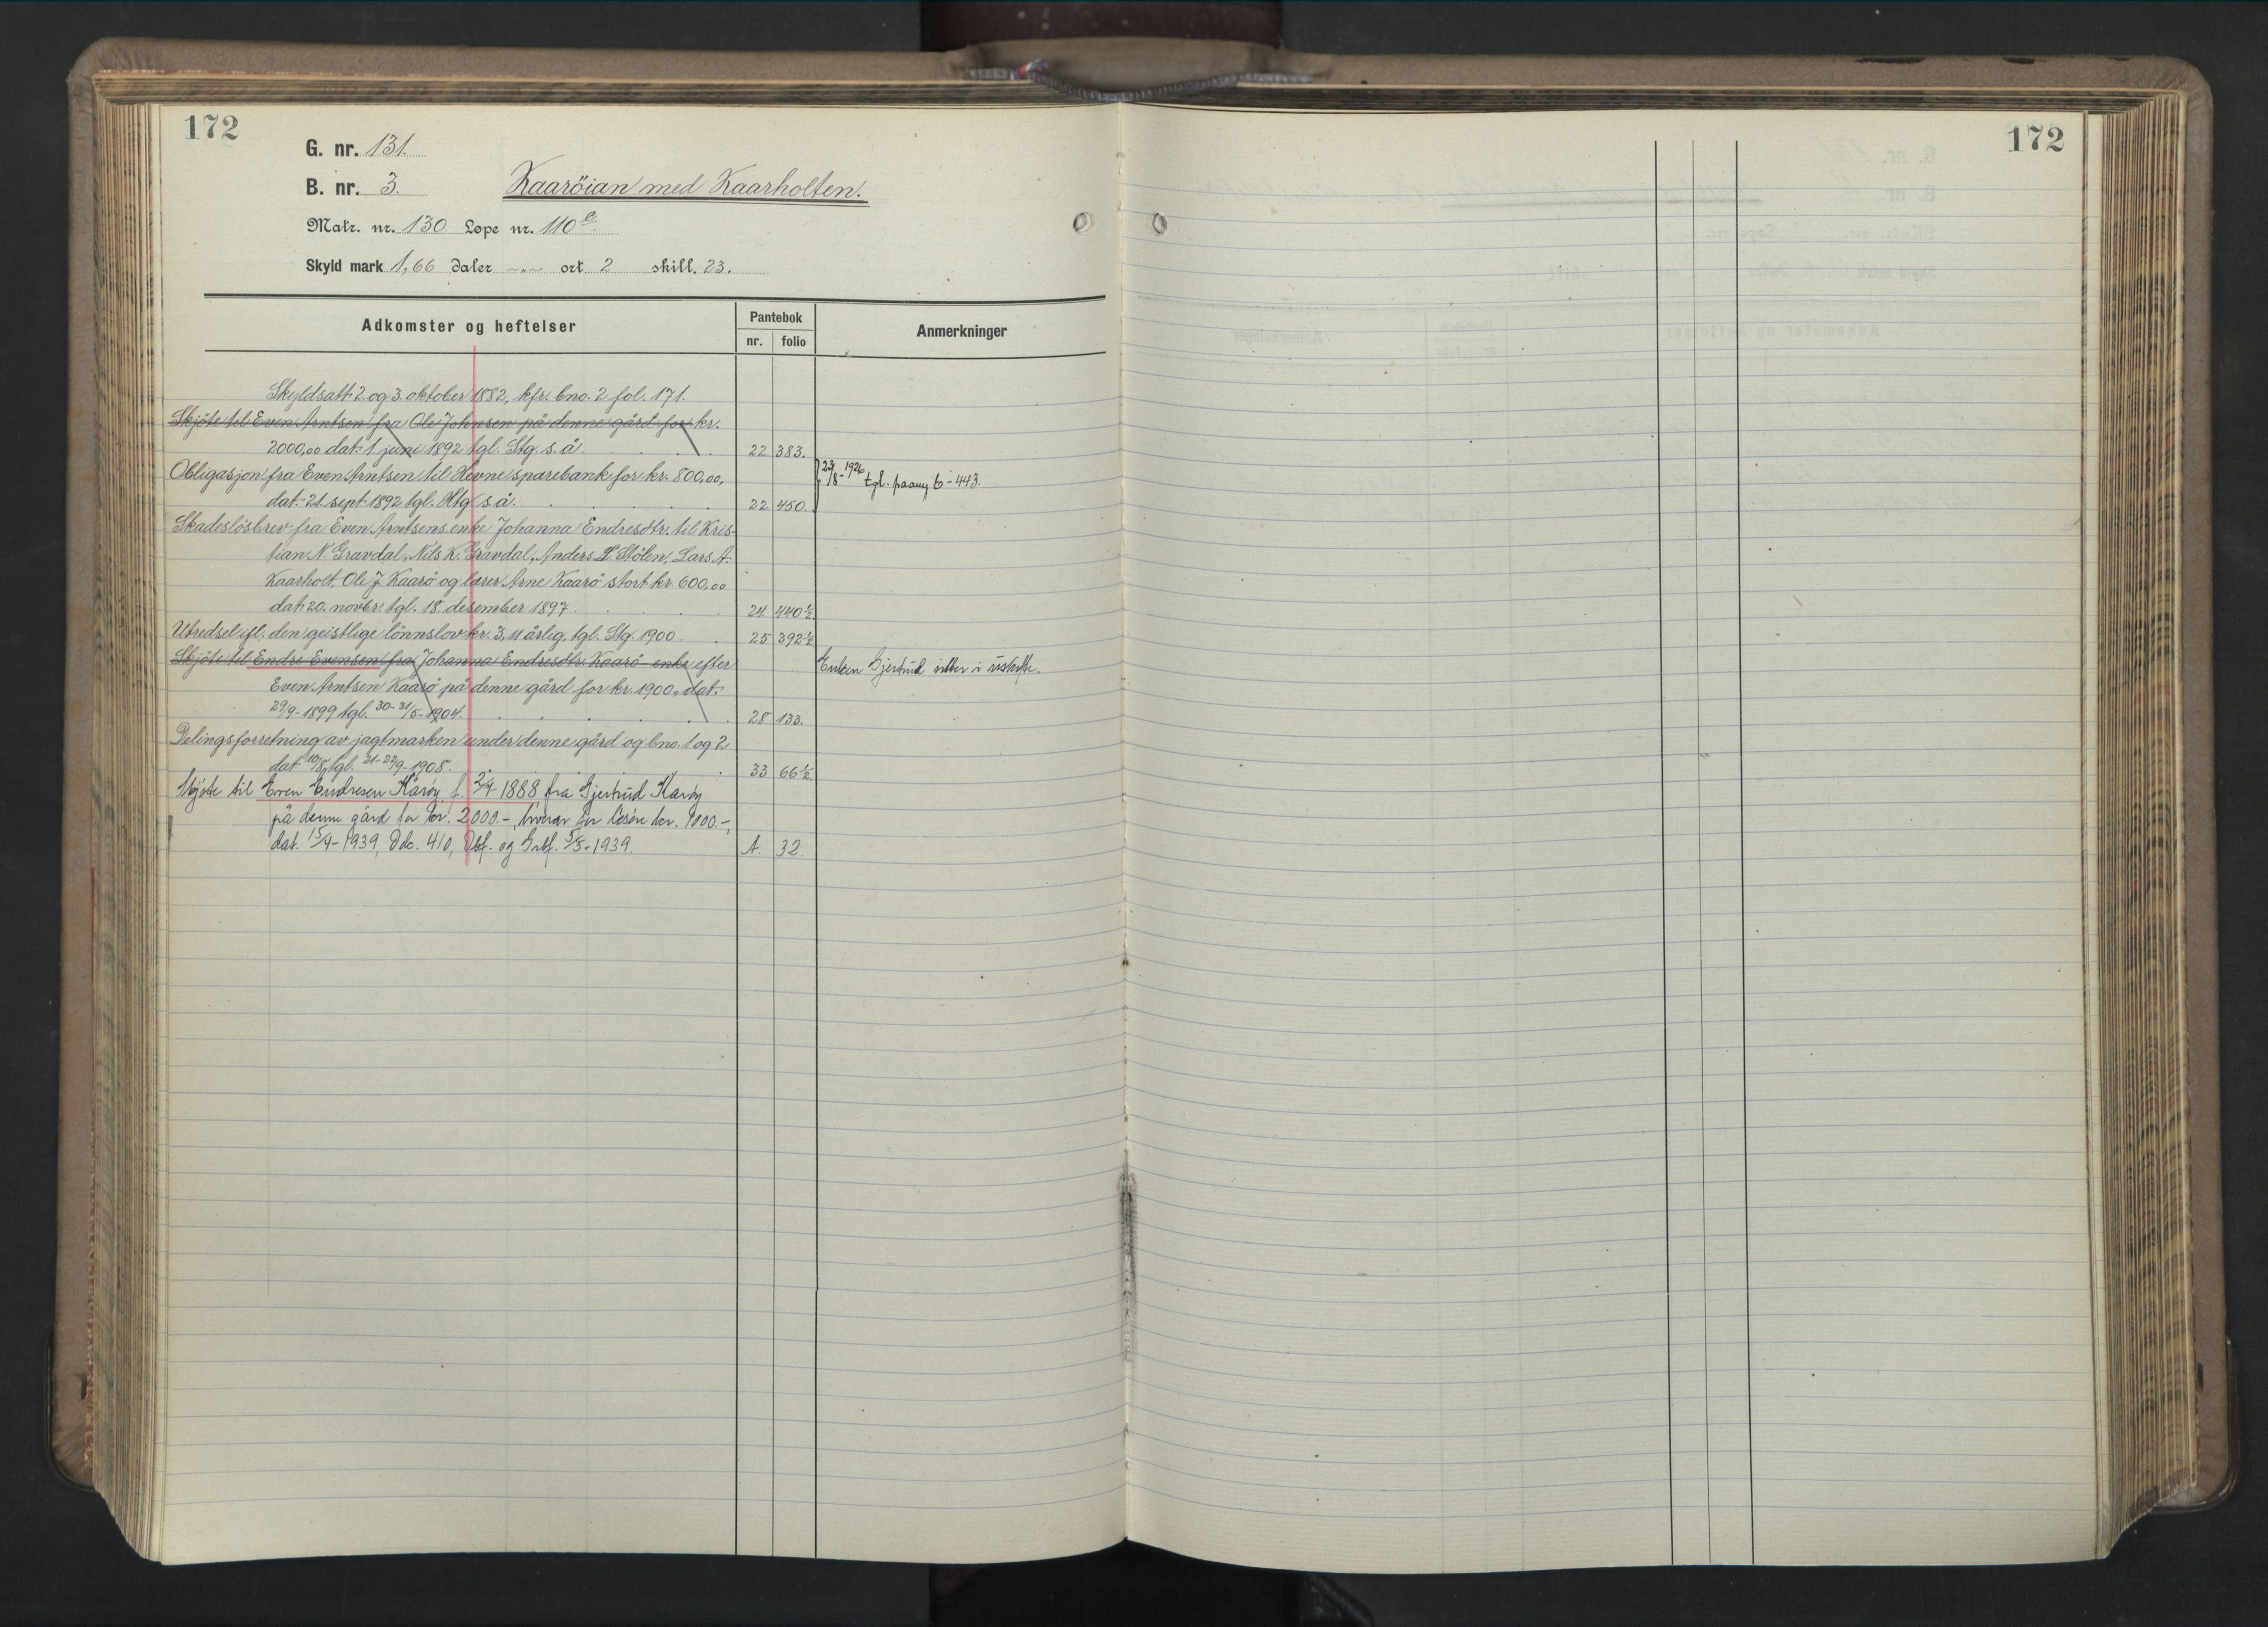 172
172
G. nr. 131.
B. nr. 3.
Kaaröian med Kaarholten.
Matr. nr. 130 Løpe nr. 110 e.
Skyld mark 1,66 daler -„- ort 2 skill. 23.
Adkomster og heftelser
Pantebok
nr. folio
Anmerkninger
Skyldsatt 2 og 3. oktober 1882, kfr. bno. 2 fol. 171.
Skjöte til Even Arntsen fra Ole Johnsen på denne gård for kr.
2000,00 dat. 1 juni 1892 tgl. Stg. s. å. 22 383.
Obligasjon fra Even Arntsen til Hevne sparebank for kr. 800,00,
23/8-1926 tgl. paany 6-443.
dat. 21. sept 1892 tgl. Htg. s. å. 22 450.
Skadeslösbrev fra Even Arntsens enke Johanna Endresdtr. til Kris-
tian N. Gravdal, Nils K. Gravdal, Anders L. Stölen, Lars A.
Kaarholt, Ole J. Kaarö og lærer Arne Kaarö stort kr. 600,00
dat. 20. novbr. tgl. 18. desember 1897. 24 440 1/2
Utredsel ifl. den geistlige lönnslov kr. 3,11 årlig, tgl. Stg. 1900. 25 392 1/2
Skjöte til Endre Evensen fra Johanna Endresdtr. Kaarö enke efter
Enken Gjertrud sitter i uskifte.
Even Arntsen Kaarö på denne gård for kr. 1900,- dat.
29/9-1899 tgl. 30-31/5-1904. 28 133.
Delingsforretning av jagtmarken under denne gård og bno. 1 og 2
dat. 10/8, tgl. 21-22/9-1908. 33 66 1/2
Skjöte til Even Endresen Kårøy f. 2/4 1888 fra Gjertrud Karöy
på denne gård for kr. 2000.-, hvorav for lösöre kr. 1000.-,
dat. 15/4-1939, Ddo. 410, Dbf. og Grbf. 5/5-1939. A. 32.